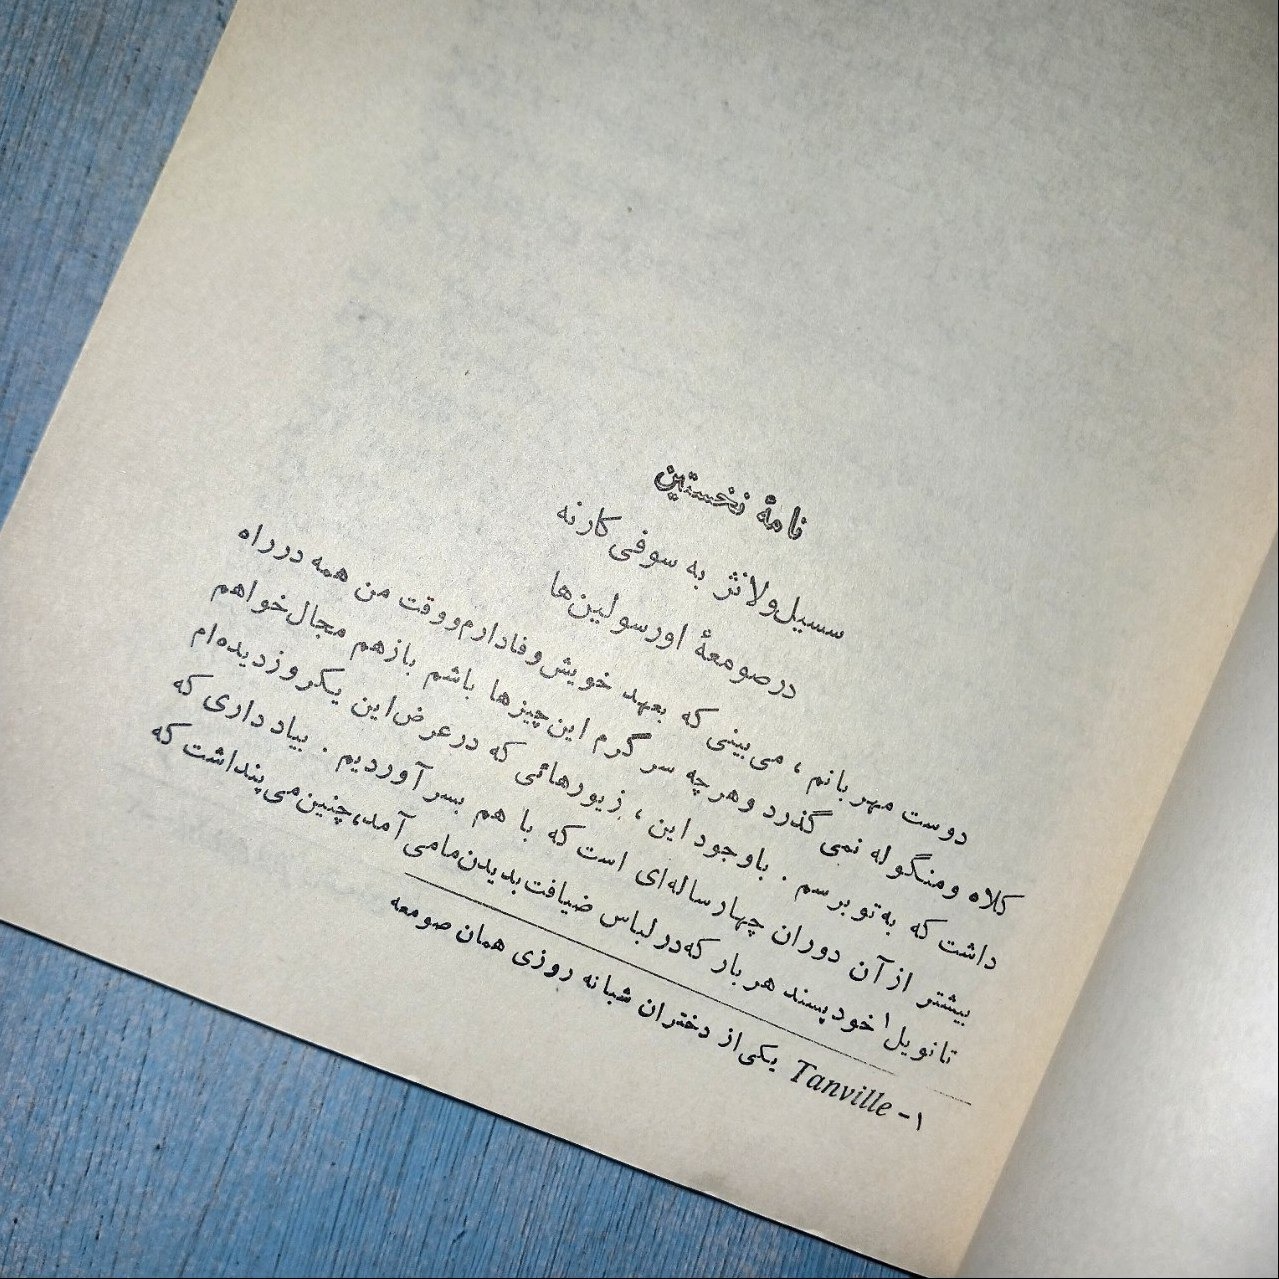 نامهٔ نخستین
سسیل‌ولانژ به سوفی‌کارنه
درصومعهٔ اورسولین‌ها
دوست مهربانم ، می‌بینی که بعهد خویش‌وفادارم‌ووقت من همه درراه
کلاه ومنگوله نمی گذرد وهرچه سر گرم این‌چیزها باشم بازهم مجال‌خواهم
داشت که به‌تو برسم . باوجود این ، زیورهائی که درعرض‌این یکروزدیده‌ام
بیشتر ازآن دوران چهارساله‌ای است که با هم بسرآوردیم . بیاد داری که
تانویل۱ خودپسند هربار که‌درلباس ضیافت‌بدیدن‌مامی آمد،چنین‌می‌پنداشت که
۱- Tanville یکی‌از دختران شبانه روزی همان صومعه